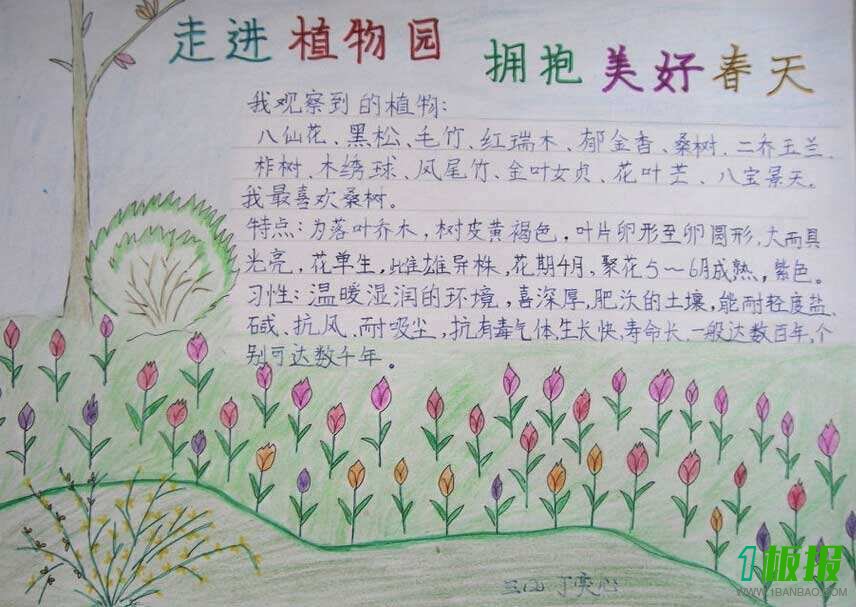 走进植物园 拥抱美好春天
我观察到的植物:
八仙花、黑松、毛竹、红瑞木、郁金香、桑树、二乔玉兰、
柞树、木绣球、凤尾竹、金叶女贞、花叶芒、八宝景天。
我最喜欢桑树。
特点:为落叶乔木,树皮黄褐色,叶片卵形至卵圆形,大而具
光亮,花单生,雌雄异株,花期4月,聚花5~6月成熟,紫色。
习性:温暖湿润的环境,喜深厚,肥沃的土壤,能耐轻度盐、
碱、抗风、耐吸尘,抗有毒气体,生长快,寿命长,一般达数百年,个
别可达数千年。
丁奕心
1板报
WWW.1BANBAO.COM